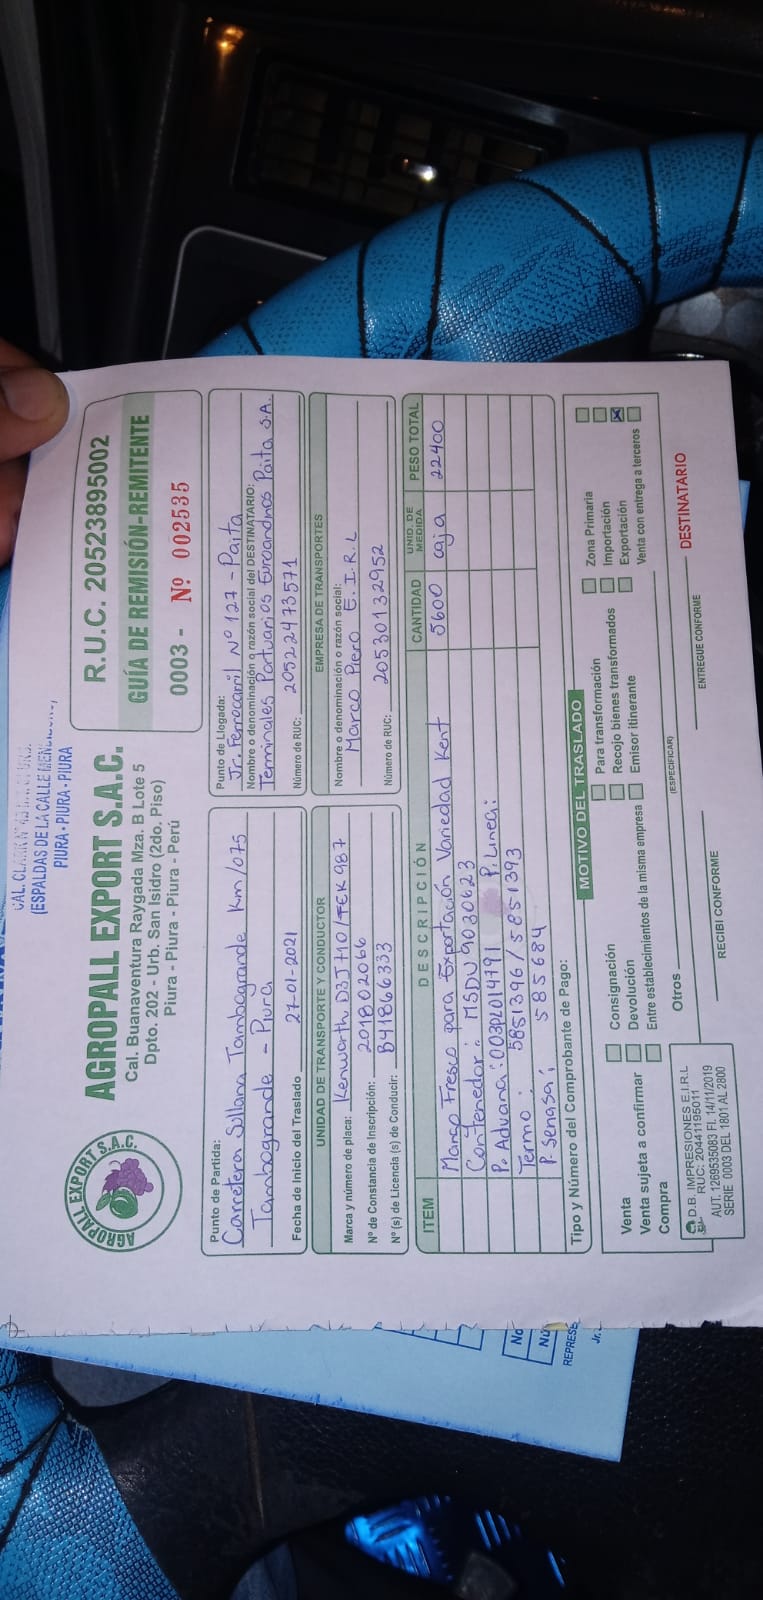 (ESPALDAS DE LA CALLE
PIURA - PIURA - PIURA
AGROPALL EXPORT S.A.C.
AGROPALL EXPORT S.A.C.
Cal. Buenaventura Raygada Mza. B Lote 5
Dpto. 202 - Urb. San Isidro (2do. Piso)
Piura - Piura - Piura - Perú
R.U.C. 20523895002
GUÍA DE REMISIÓN-REMITENTE
0003 - Nº 002535
Punto de Partida:
Carretera Sullana Tambogrande Km/075
Tambogrande - Piura
Fecha de Inicio del Traslado 27-01-2021
Punto de Llegada:
Jr. Ferrocarril Nº 127 - Paita
Nombre o denominación o razón social del DESTINATARIO:
Terminales Portuarios Euroandinos Paita S.A.
Número de RUC: 20522473571
UNIDAD DE TRANSPORTE Y CONDUCTOR
Marca y número de placa: Kenworth D3J710/FEK987
Nº de Constancia de Inscripción: 201802066
Nº(s) de Licencia (s) de Conducir: B41866333
EMPRESA DE TRANSPORTES
Nombre o denominación o razón social:
Marco Piero E.I.R.L
Número de RUC: 20530132952
ITEM DESCRIPCIÓN CANTIDAD UNID. DE MEDIDA PESO TOTAL
Mango Fresco para Exportación Variedad Kent 5600 caja 22400
Contenedor: MSDU9020623
P. Aduana: 003PL014791 P. Linea:
Termo: 5851396/5851393
P. Senasa: 585684
Tipo y Número del Comprobante de Pago:
MOTIVO DEL TRASLADO
Venta
Venta sujeta a confirmar
Compra
Consignación
Devolución
Entre establecimientos de la misma empresa
Para transformación
Recojo bienes transformados
Emisor itinerante
Zona Primaria
Importación
Exportación
Venta con entrega a terceros
Otros
(ESPECIFICAR)
D.B. IMPRESIONES E.I.R.L
RUC: 20441195011
AUT. 1269535083 FI. 14/11/2019
SERIE 0003 DEL 1801 AL 2800
RECIBI CONFORME
ENTREGUE CONFORME
DESTINATARIO
REPRESE
Jr.